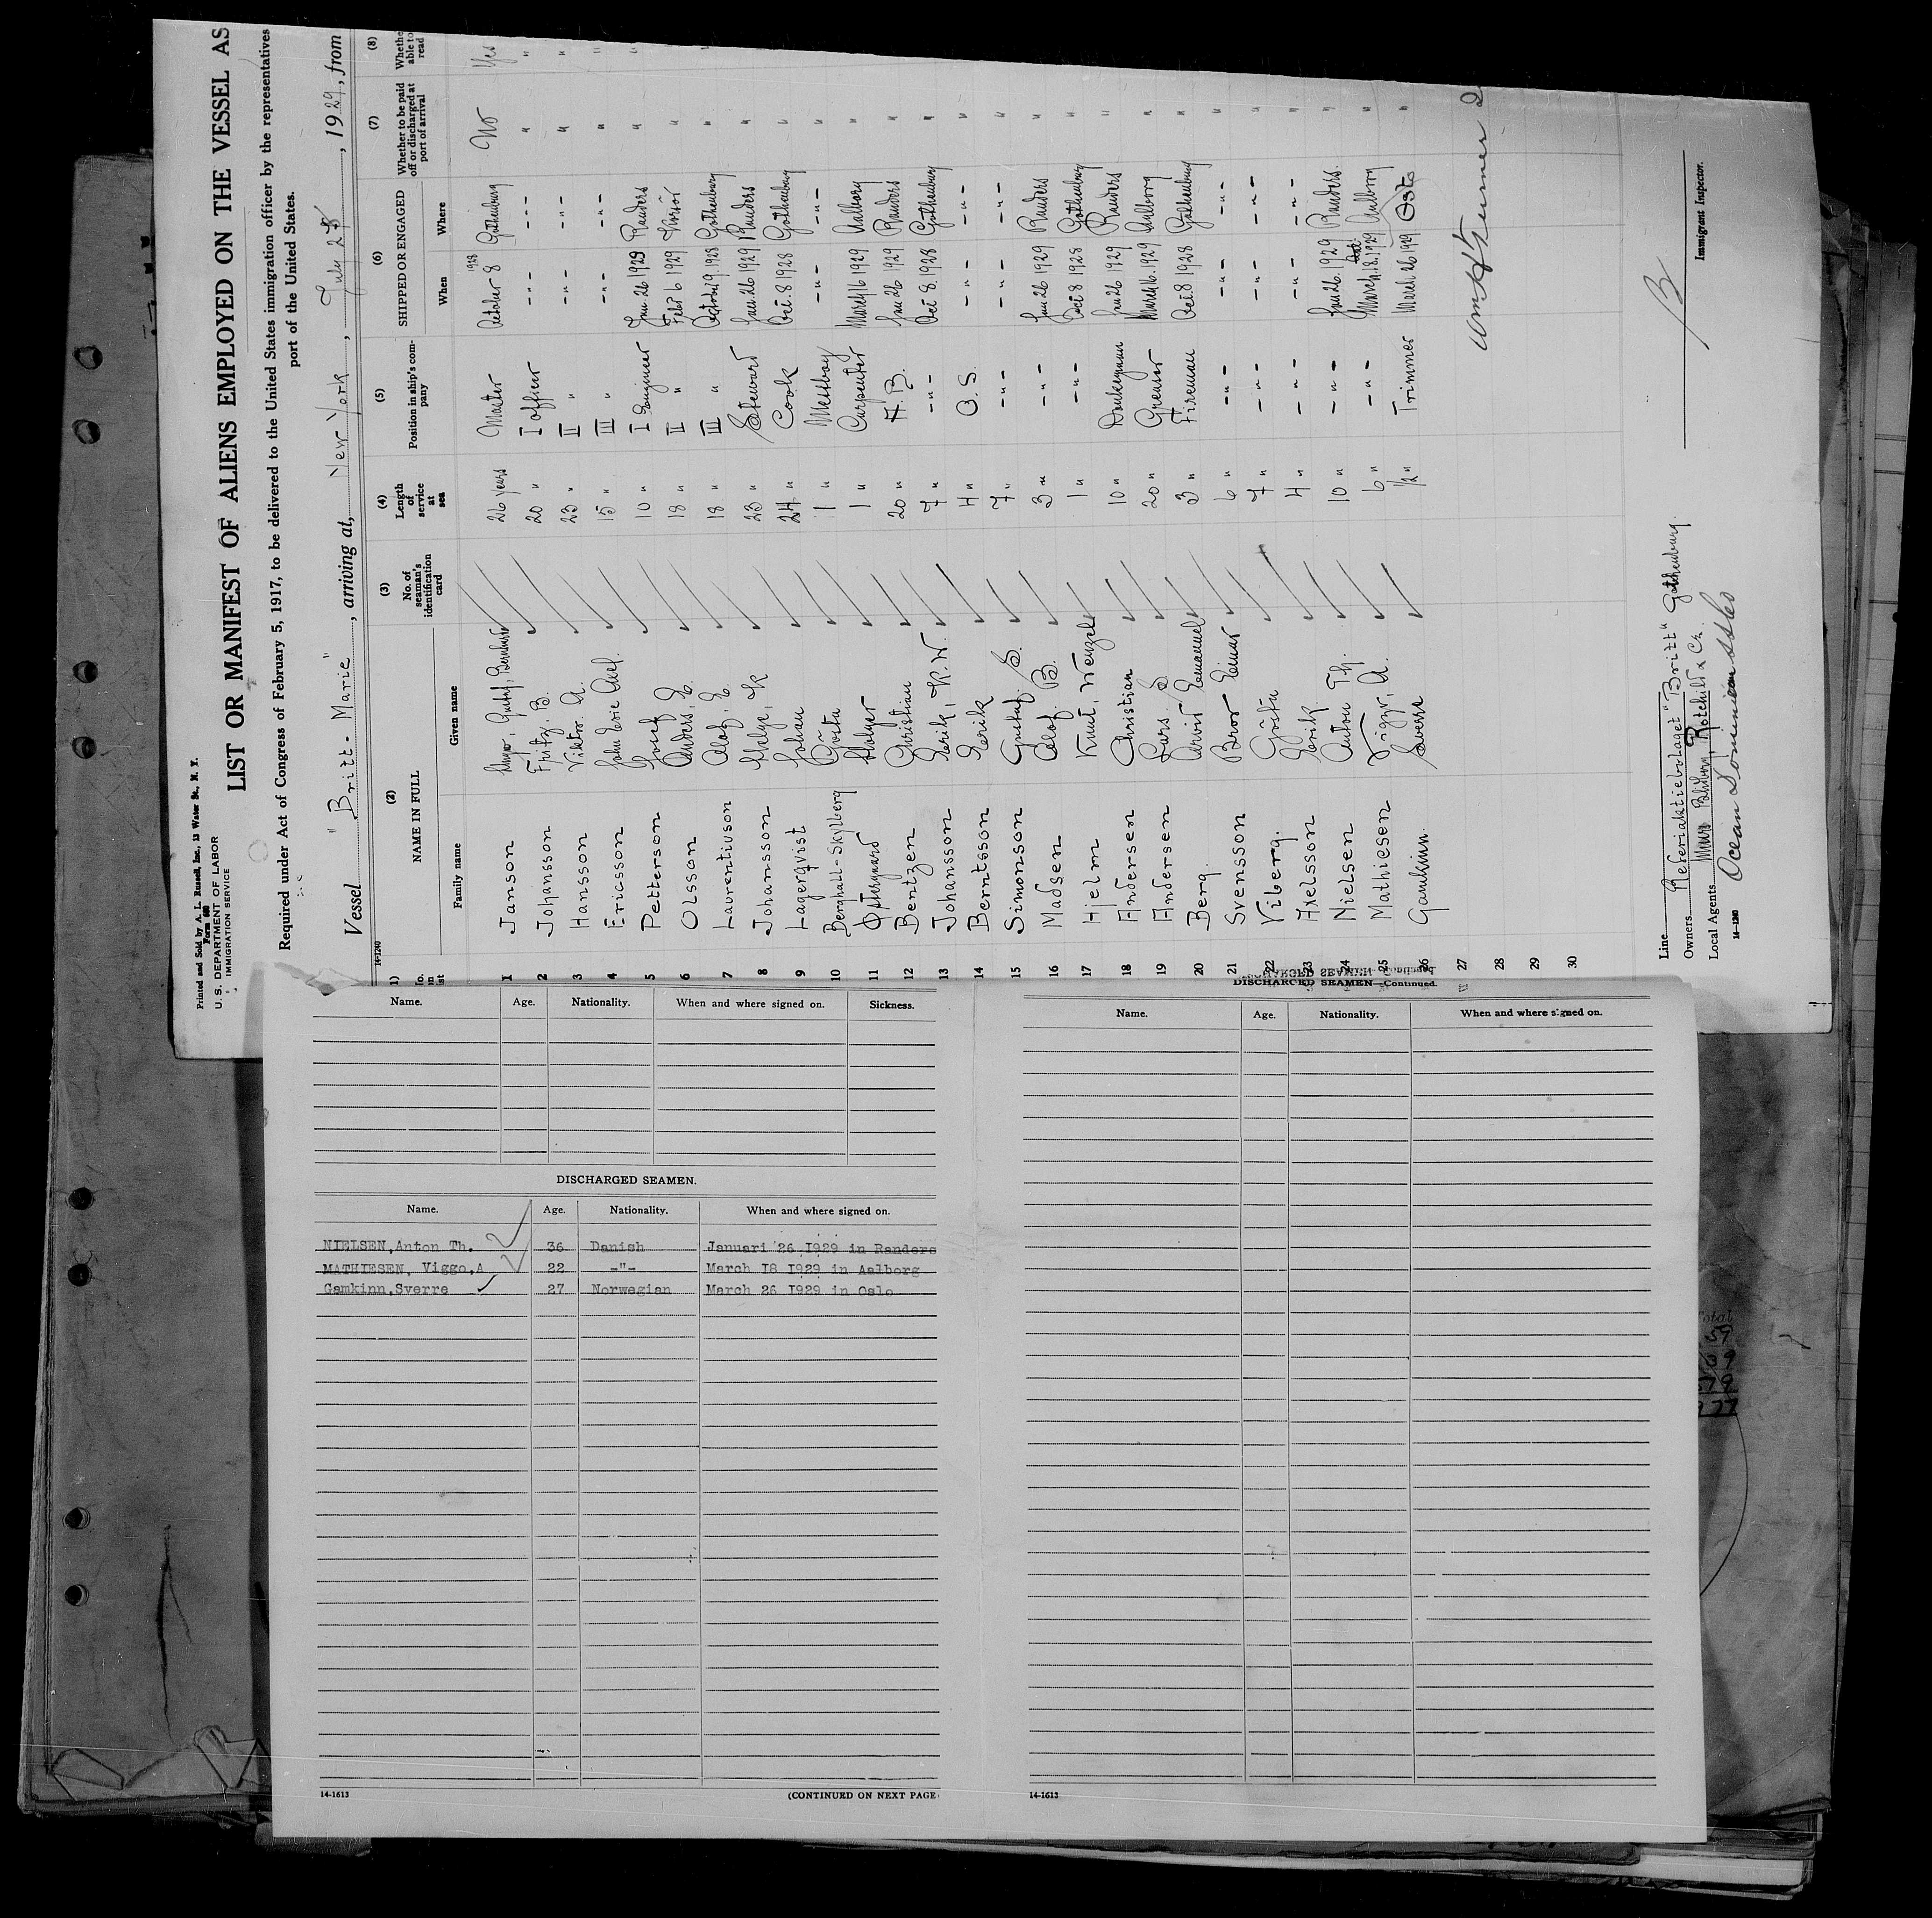 Printed and Sold by A. L. Russell, Inc., 13 Water St., N. Y.
Form 680
U. S. DEPARTMENT OF LABOR
IMMIGRATION SERVICE
LIST OR MANIFEST OF ALIENS EMPLOYED ON THE VESSEL AS
Required under Act of Congress of February 5, 1917, to be delivered to the United States immigration officer by the representatives
port of the United States.
Vessel "Britt-Marie", arriving at, New York, July 25, 1929, from
14-1240
(2) (3) (4) (5) (6) (7) (8)
NAME IN FULL No. of seaman's identification card Length of service at sea Position in ship's company SHIPPED OR ENGAGED Whether to be paid off or discharged at port of arrival Whether able to read
Family name Given name When Where
1 Janson Gustaf, Bernhard 26 years Master October 8 1928 Gothenburg No Yes
2 Johansson Fritz. B. 20 " I officer -"- -"- " "
3 Hansson Viktor A. 23 " II " -"- -"- " "
4 Ericsson John Eric Axel. 15 " III " -"- -"- " "
5 Petterson Josef E. 10 " I Engineer Jan 26 1929 Randers " "
6 Olsson Anders, E. 18 " II " Febr 6 1929 "
7 Laurentiuson Olof, E. 18 " III " October 9. 1928 Gothenburg "
8 Johansson Helge, K 23 " Steward Jan. 26 1929 Randers "
9 Lagerqvist Johan 24 " Cook Oct. 8 1928 Gothenburg "
10 Berghall-Skylberg Gösta 1 " Messboy -"- -"- "
11 Østergaard Holger 1 " Carpenter March 16 1929 Aalborg "
12 Bentzen Christian 20 " A.B. Jan 26 1929 Randers "
13 Johansson Erik, K.W. 7 " -"- Oct 8. 1928 Gothenburg "
14 Berntsson Erik 4 " O.S. -"- -"- "
15 Simonson Gustaf S. 7 " -"- -"- -"- "
16 Madsen Olof. B. 3 " -"- Jan 26 1929 Randers "
17 Hjelm Knut, Wenzel 1 " -"- Oct 8 1928 Gothenburg "
18 Andersen Christian 10 " Donkeyman Jan 26 1929 Randers "
19 Andersen Lars. S 20 " Greaser March 16. 1929 Aalborg "
20 Berg. Arvid Emanuel 3 " Fireman Oct. 8 1928 Gothenburg "
21 Svensson Bror Einar 6 " -"- -"- -"- "
22 Viberg. Gösta 7 " -"- -"- -"- "
23 Axelsson Erik 4 " -"- -"- -"- "
24 Nielsen Anton Th. 10 " -"- Jan 26. 1929 Randers. "
25 Mathiesen Viggo, A. 6 " -"- March. 18. 1929 Aalborg "
26 Gamkinn. Sverre 1/2 " Trimmer March 26 1929 Oslo "
27
28
29
30
Line
Owners Rederiaktiebolaget "Britt" Gothenburg.
Local Agents
14-1240
Ocean Dominion SS Co
Immigrant Inspector.
Name. Age. Nationality. When and where signed on. Sickness.
DISCHARGED SEAMEN.
Name. Age. Nationality. When and where signed on.
NIELSEN,Anton Th. 36 Danish Januari 26 1929 in Randers
MATHIESEN, Viggo,A 22 -"- March 18 1929 in Aalborg
Gamkinn,Sverre 27 Norwegian March 26 1929 in Oslo
14-1613 (CONTINUED ON NEXT PAGE
DISCHARGED SEAMEN—Continued.
Name. Age. Nationality. When and where signed on.
14-1613